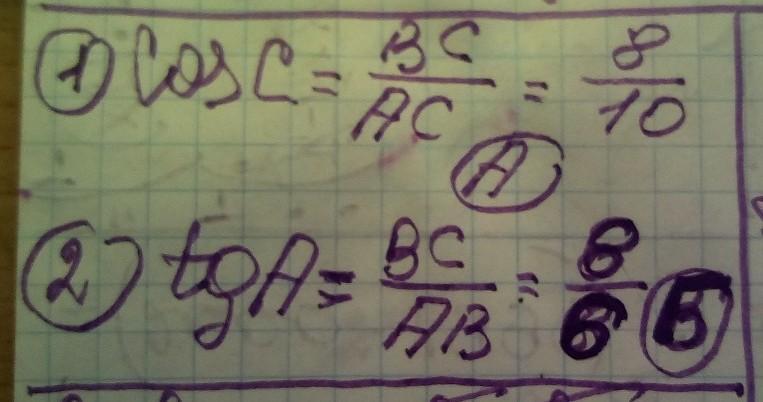 1) cos C = BC/AC = 8/10
A
2) tg A = BC/AB = 8/6 Б